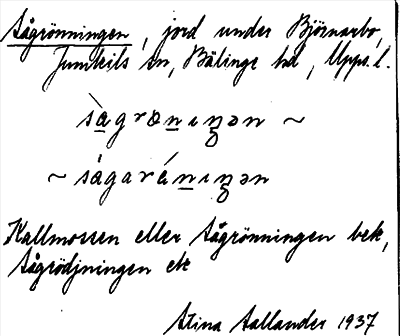 Sågrönningen, jord under Björnarbo,
Jumkils sn, Bälinge hd, Upps. l.
sàgrœnıŋən ~
~ ságaránıŋən
Kallmossen eller Sågrönningen bek,
Sågrödjningen ek
Stina Sallander 1937